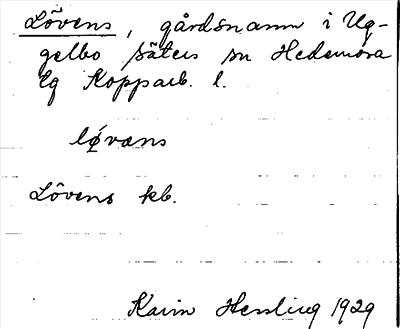 Lövens, gårdsnamn i Ug-
gelbo Säters sn Hedemora
tg Kopparb. l.
lǿvans
Lövens kb.
Karin Hessling 1929